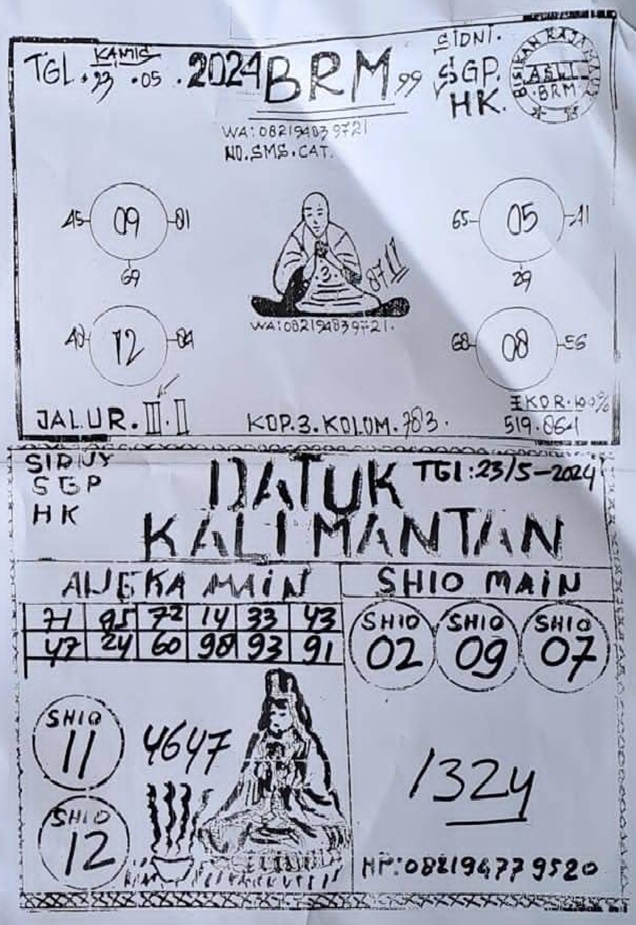 KAMIS
TGL. 23 .05 .2024 BRM 99
SIDNI.
SGP.
HK.
BISIKAN
ASLI
BRM
WA:082194839721
NO.SMS.CAT.
45 09 01
69
65 05 11
29
3.
8711
WA:082194839721.
12 04
68 08 56
JALUR. III. II
KOP.3.KOLOM.783.
EKOR.100%
519.864
SIDNY
SGP
HK
DATUK
KALIMANTAN
TGl:23/5-2024
ANGKA MAIN
71 95 72 14 33 43
47 24 60 98 93 91
SHIO MAIN
SHIO 02
SHIO 09
SHIO 07
SHIO 11
4647
SHIO 12
1324
HP:082194779520